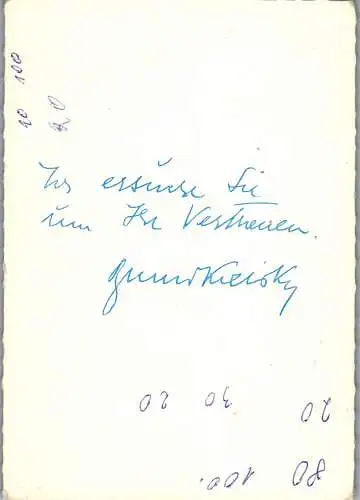 10 100
20
Ich ersuche Sie
um Ihr Vertrauen.
Bruno Kreisky
20 30 20
80 100.